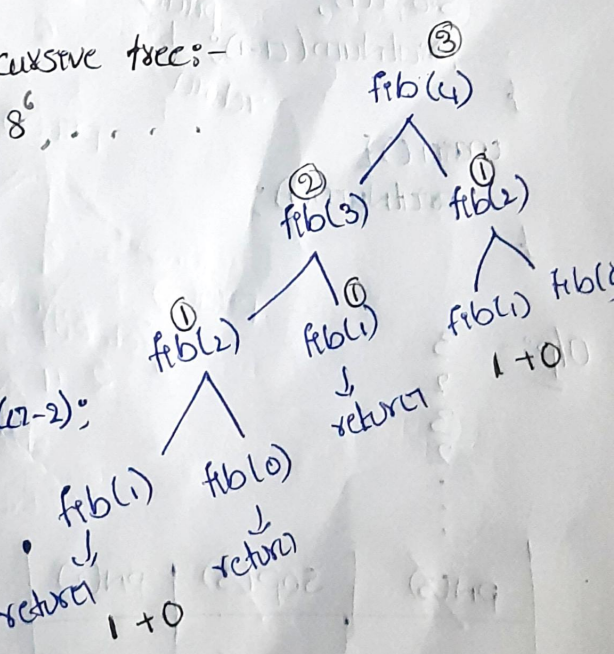 cursive tree:-
③
fib(4)
8⁶, . . . .
② ①
fib(3) fib(2)
① ①
fib(2) fib(1) fib(1) fib(
1+0
return
(n-2);
fib(1) fib(0)
return return
1+0